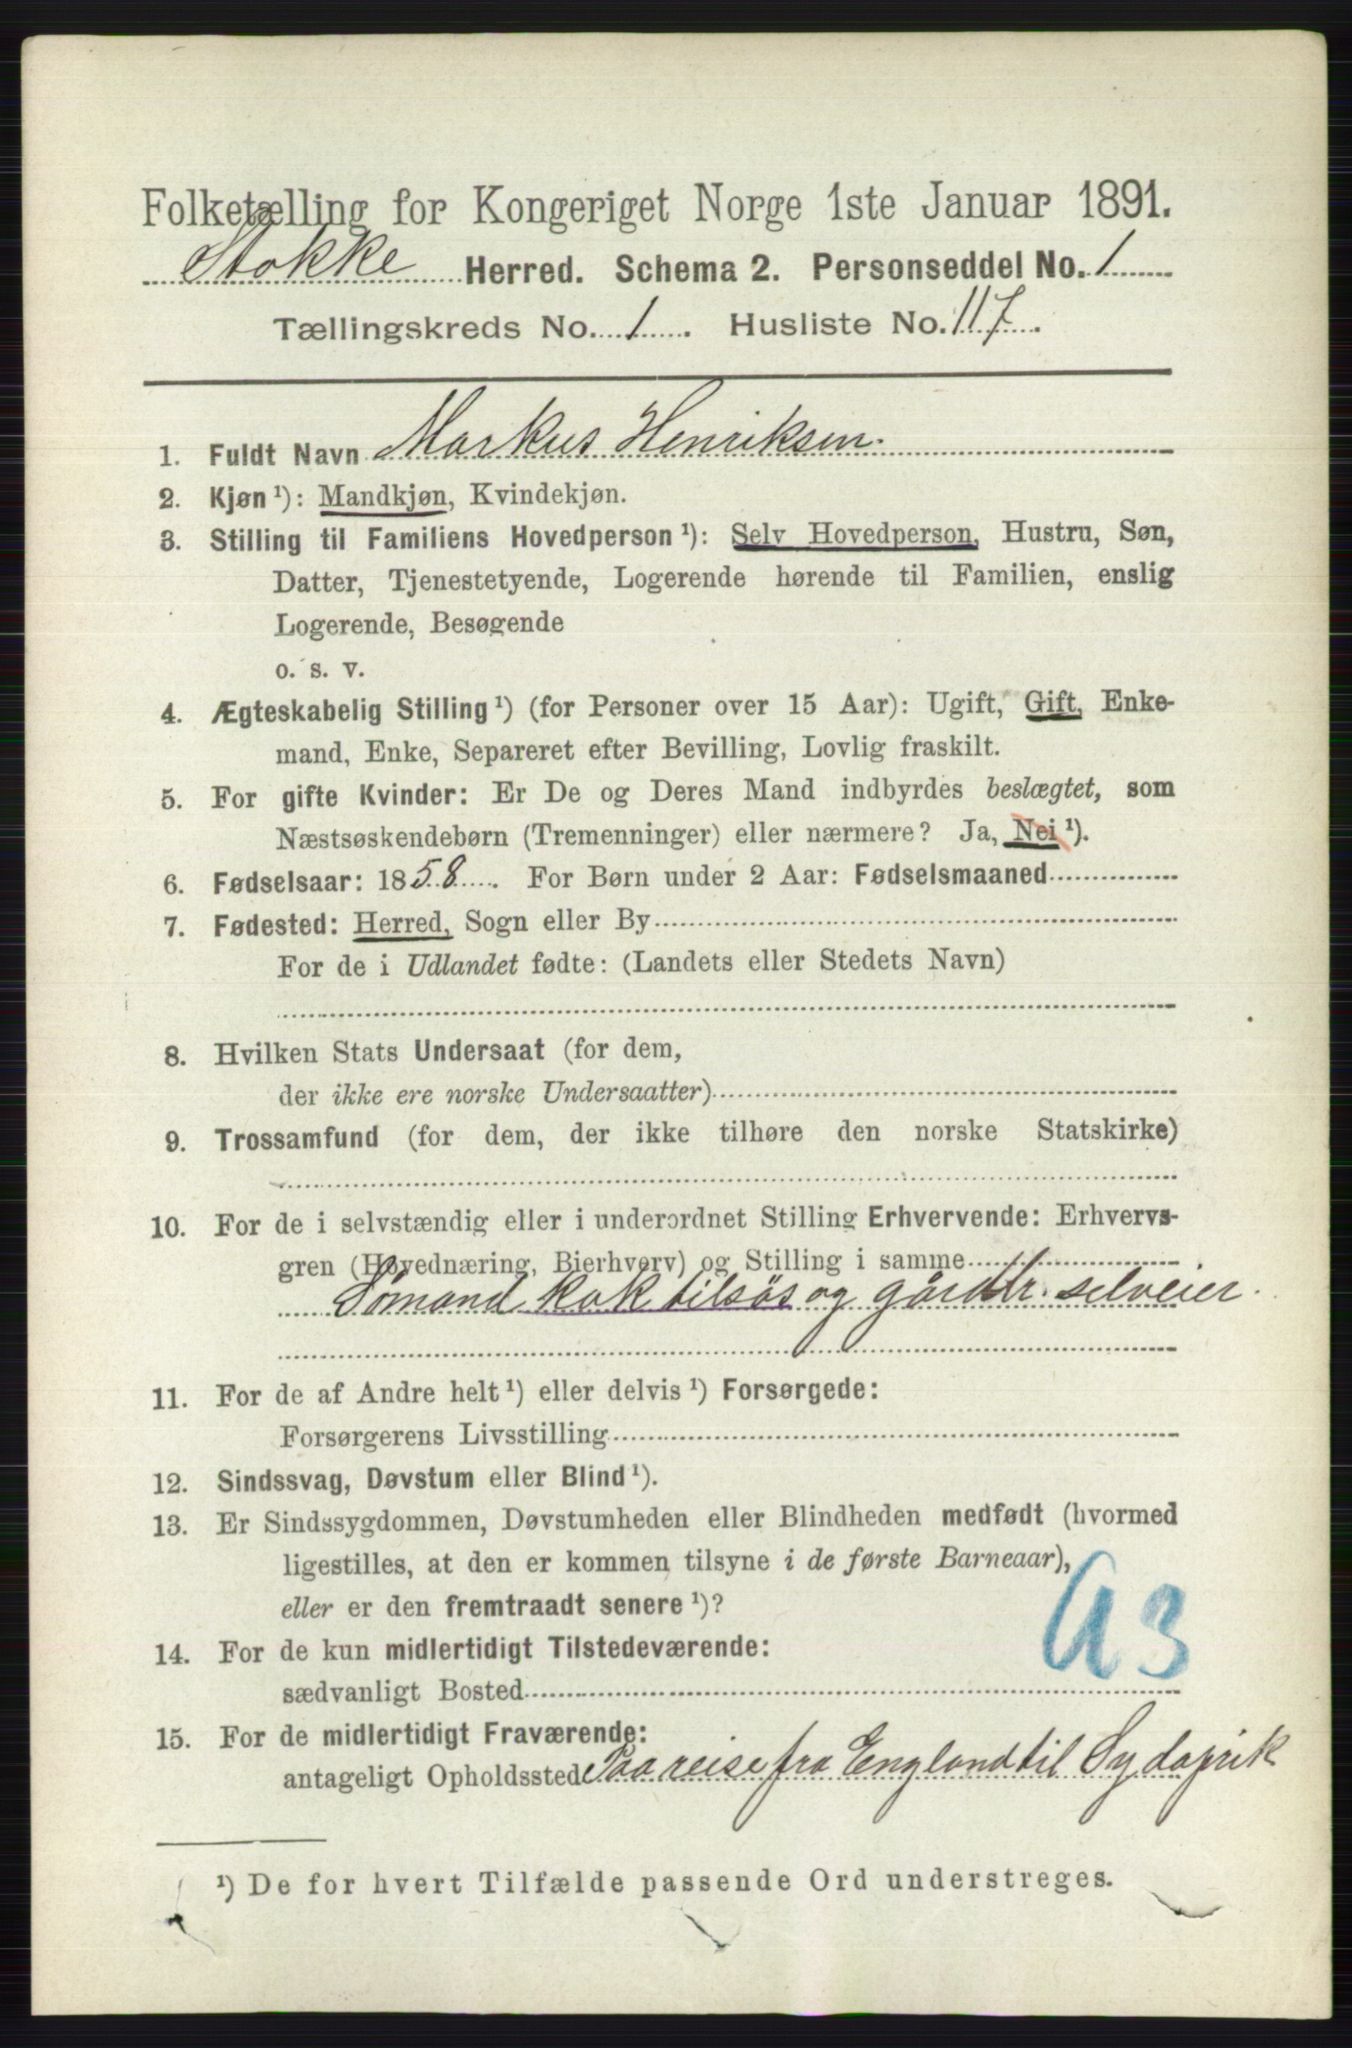 Folketælling for Kongeriget Norge 1ste Januar 1891.
Stokke Herred. Schema 2. Personseddel No. 1
Tællingskreds No. 1. Husliste No. 117.
1. Fuldt Navn Markus Henriksen.
2. Kjøn ¹): Mandkjøn, Kvindekjøn.
3. Stilling til Familiens Hovedperson ¹): Selv Hovedperson, Hustru, Søn,
Datter, Tjenestetyende, Logerende hørende til Familien, enslig
Logerende, Besøgende
o. s. v.
4. Ægteskabelig Stilling ¹) (for Personer over 15 Aar): Ugift, Gift, Enke-
mand, Enke, Separeret efter Bevilling, Lovlig fraskilt.
5. For gifte Kvinder: Er De og Deres Mand indbyrdes beslægtet, som
Næstsøskendebørn (Tremenninger) eller nærmere? Ja, Nei ¹).
6. Fødselsaar: 1858. For Børn under 2 Aar: Fødselsmaaned
7. Fødested: Herred, Sogn eller By
For de i Udlandet fødte: (Landets eller Stedets Navn)
8. Hvilken Stats Undersaat (for dem,
der ikke ere norske Undersaatter)
9. Trossamfund (for dem, der ikke tilhøre den norske Statskirke)
10. For de i selvstændig eller i underordnet Stilling Erhvervende: Erhvervs-
gren (Hovednæring, Bierhverv) og Stilling i samme
Sømand kok tilsøs og gårdbr. selveier.
11. For de af Andre helt ¹) eller delvis ¹) Forsørgede:
Forsørgerens Livsstilling
12. Sindssvag, Døvstum eller Blind ¹).
13. Er Sindssygdommen, Døvstumheden eller Blindheden medfødt (hvormed
ligestilles, at den er kommen tilsyne i de første Barneaar),
eller er den fremtraadt senere ¹)?
14. For de kun midlertidigt Tilstedeværende:
sædvanligt Bosted
15. For de midlertidigt Fraværende:
antageligt Opholdssted Paa reise fra England til Sydafrik
¹) De for hvert Tilfælde passende Ord understreges.